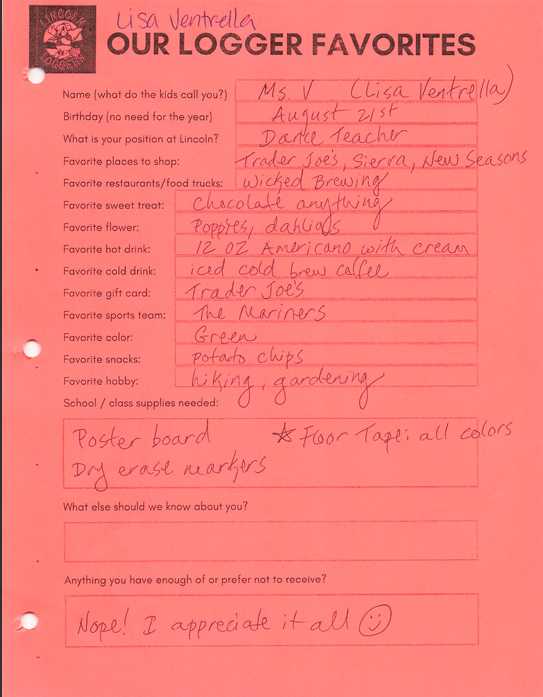 Lisa Ventrella
LINCOLN
LOGGERS
OUR LOGGER FAVORITES
Name (what do the kids call you?) Ms. V (Lisa Ventrella)
Birthday (no need for the year) August 21st
What is your position at Lincoln? Dance Teacher
Favorite places to shop: Trader Joe's, Sierra, New Seasons
Favorite restaurants/food trucks: Wicked Brewing
Favorite sweet treat: Chocolate anything
Favorite flower: Poppies, dahlias
Favorite hot drink: 12 OZ Americano with cream
Favorite cold drink: iced cold brew coffee
Favorite gift card: Trader Joe's
Favorite sports team: The Mariners
Favorite color: Green
Favorite snacks: potato chips
Favorite hobby: hiking, gardening
School / class supplies needed:
Poster board ☆ Floor Tape: all colors
Dry erase markers
What else should we know about you?
Anything you have enough of or prefer not to receive?
Nope! I appreciate it all ☺